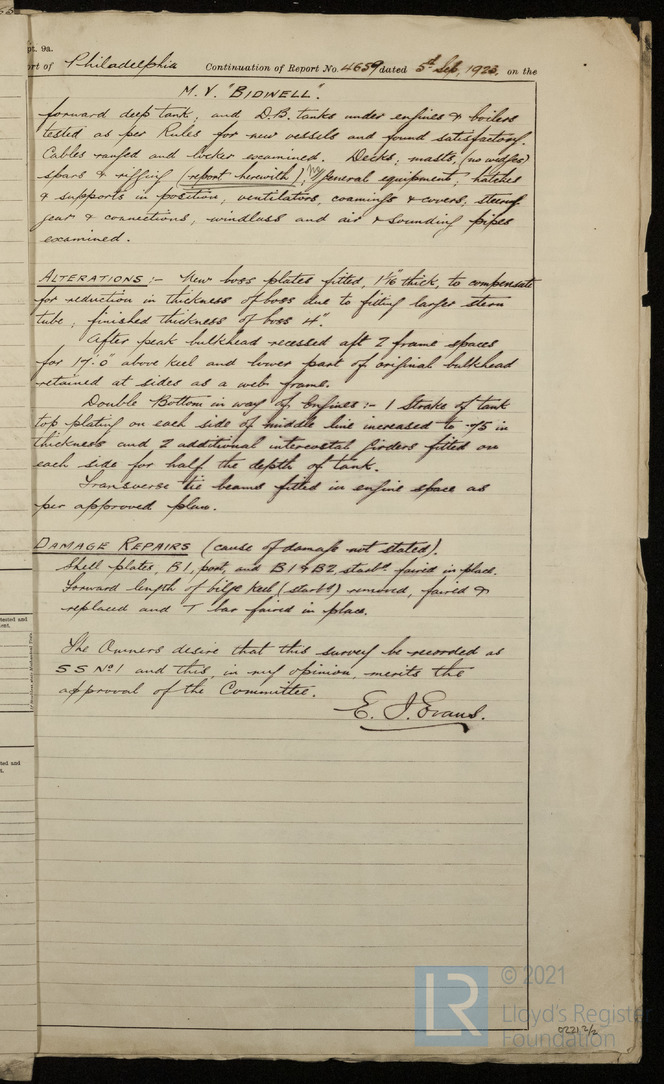 pt. 9a.
rt of Philadelphia Continuation of Report No. 4659 dated 5th Sep, 1923, on the
M.V. "BIDWELL".
forward deep tank; and D.B. tanks under engines & boilers
tested as per Rules for new vessels and found satisfactory.
Cables ranged and locker examined. Decks; masts, (no wedges)
spars & rigging (report herewith); general equipment; hatches
& supports in position, ventilators, coamings & covers, steering
gear & connections, windlass and air & sounding pipes
examined.
ALTERATIONS:- New boss plates fitted, 1 1/16" thick, to compensate
for reduction in thickness of boss due to fitting larger stern
tube; finished thickness of boss 4".
After peak bulkhead recessed aft 2 frame spaces
for 17'.0" above keel and lower part of original bulkhead
retained at sides as a web frame.
Double Bottom in way of Engines:- 1 Strake of tank
top plating on each side of middle line increased to .75 in
thickness and 2 additional intercostal girders fitted on
each side for half the depth of tank.
Transverse tie beams fitted in engine space as
per approved plan.
DAMAGE REPAIRS (cause of damage not stated).
Shell plates, B1, port, and B1 & B2 starbd. faired in place.
Forward length of bilge keel (starbd) removed, faired &
replaced and T bar faired in place.
The Owners desire that this survey be recorded as
SS No 1 and this, in my opinion, merits the
approval of the Committee.
E. J. Evans.
© 2021
LR
Lloyd's Register
Foundation
0221 2/2